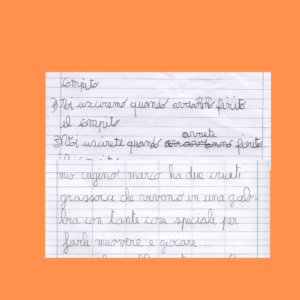 compito
2) Noi usciremo quando avranno finito
il compito
avrete
3) Voi uscirete quando finito
mio cugino marco ha due criceti
grassocci che vivono in una gab-
bia con tante cose speciali per
farli muovere e giocare...